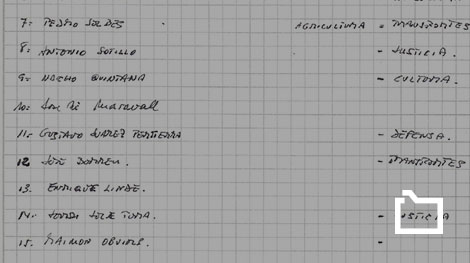 7: PEDRO SOLBES AGRICULTURA - TRANSPORTES
8: ANTONIO SOTILLO - JUSTICIA.
9: NACHO QUINTANA - CULTURA.
10: José Mª Maravall
11: GUSTAVO SUAREZ PERTIERRA - DEFENSA.
12 JOSE BORRELL. - TRANSPORTES
13. ENRIQUE LINDE.
14. -
15. RAIMON OBIOLS. -